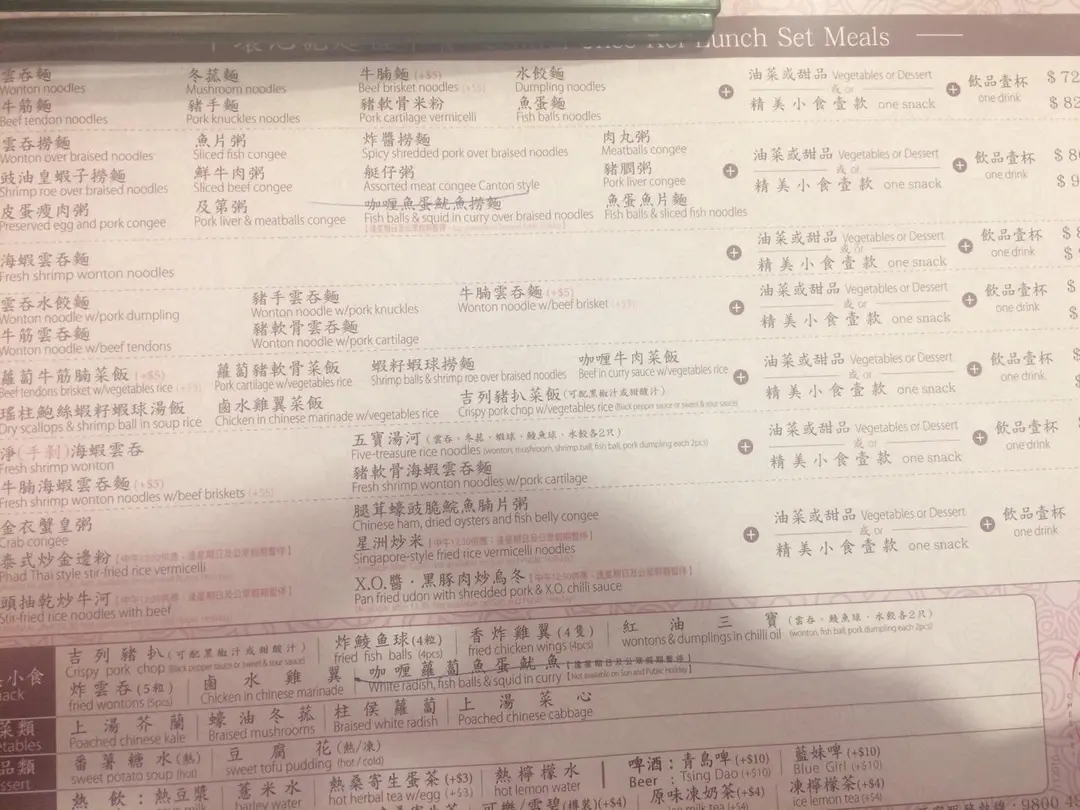 Lunch Set Meals
雲吞麵 冬菰麵 牛腩麵 (+$5) 水餃麵
Wonton noodles Mushroom noodles Beef brisket noodles (+$5) Dumpling noodles
牛筋麵 豬手麵 豬軟骨米粉 魚蛋麵
Beef tendon noodles Pork knuckles noodles Pork cartilage vermicelli Fish balls noodles
油菜或甜品 Vegetables or Dessert 飲品壹杯 $72
或 or
精美小食壹款 one snack one drink $82
雲吞撈麵 魚片粥 炸醬撈麵 肉丸粥
Wonton over braised noodles Sliced fish congee Spicy shredded pork over braised noodles Meatballs congee
豉油皇蝦子撈麵 鮮牛肉粥 艇仔粥 豬膶粥
Shrimp roe over braised noodles Sliced beef congee Assorted meat congee Canton style Pork liver congee
皮蛋瘦肉粥 及第粥 咖喱魚蛋魷魚撈麵 魚蛋魚片麵
Preserved egg and pork congee Pork liver & meatballs congee Fish balls & squid in curry over braised noodles Fish balls & sliced fish noodles
油菜或甜品 Vegetables or Dessert 飲品壹杯
或 or
精美小食壹款 one snack one drink
海蝦雲吞麵
Fresh shrimp wonton noodles
油菜或甜品 Vegetables or Dessert 飲品壹杯
或 or
精美小食壹款 one snack one drink
雲吞水餃麵 豬手雲吞麵 牛腩雲吞麵 (+$5)
Wonton noodle w/pork dumpling Wonton noodle w/pork knuckles Wonton noodle w/beef brisket (+$5)
牛筋雲吞麵 豬軟骨雲吞麵
Wonton noodle w/beef tendons Wonton noodle w/pork cartilage
油菜或甜品 Vegetables or Dessert 飲品壹杯
或 or
精美小食壹款 one snack one drink
蘿蔔牛筋腩菜飯 (+$5) 蘿蔔豬軟骨菜飯 蝦籽蝦球撈麵 咖喱牛肉菜飯
Beef tendons brisket w/vegetables rice (+$5) Pork cartilage w/vegetables rice Shrimp balls & shrimp roe over braised noodles Beef in curry sauce w/vegetables rice
瑤柱鮑絲蝦籽蝦球湯飯 鹵水雞翼菜飯 吉列豬扒菜飯 (可配黑椒汁或甜酸汁)
Dry scallops & shrimp ball in soup rice Chicken in chinese marinade w/vegetables rice Crispy pork chop w/vegetables rice (Black pepper sauce or sweet & sour sauce)
油菜或甜品 Vegetables or Dessert 飲品壹杯
或 or
精美小食壹款 one snack one drink
淨(手剝)海蝦雲吞 五寶湯河 (雲吞、冬菰、蝦球、鯪魚球、水餃各2只)
Fresh shrimp wonton Five-treasure rice noodles (wonton, mushroom, shrimp ball, fish ball, pork dumpling each 2pcs)
牛腩海蝦雲吞麵 (+$5) 豬軟骨海蝦雲吞麵
Fresh shrimp wonton noodles w/beef briskets (+$5) Fresh shrimp wonton noodles w/pork cartilage
油菜或甜品 Vegetables or Dessert 飲品壹杯
或 or
精美小食壹款 one snack one drink
金衣蟹皇粥 腿茸蠔豉脆鯇魚腩片粥
Crab congee Chinese ham, dried oysters and fish belly congee
泰式炒金邊粉 星洲炒米
Phad Thai style stir-fried rice vermicelli Singapore-style fried rice vermicelli noodles
頭抽乾炒牛河 X.O.醬·黑豚肉炒烏冬
Stir-fried rice noodles with beef Pan fried udon with shredded pork & X.O. chilli sauce
油菜或甜品 Vegetables or Dessert 飲品壹杯
或 or
精美小食壹款 one snack one drink
小食 吉列豬扒 (可配黑椒汁或甜酸汁) 炸鯪魚球(4粒) 香炸雞翼(4隻) 紅油三寶 (雲吞、鯪魚球、水餃各2只)
Crispy pork chop (Black pepper sauce or sweet & sour sauce) fried fish balls (4pcs) fried chicken wings (4pcs) wontons & dumplings in chilli oil (wonton, fish ball, pork dumpling each 2pcs)
炸雲吞(5粒) 鹵水雞翼 咖喱蘿蔔魚蛋魷魚 【逢星期日及公眾假期暫停】
fried wontons (5pcs) Chicken in chinese marinade White radish, fish balls & squid in curry 【Not available on Sun and Public Holiday】
菜類 上湯芥蘭 蠔油冬菰 柱侯蘿蔔 上湯菜心
Poached chinese kale Braised mushrooms Braised white radish Poached chinese cabbage
品類 番薯糖水(熱) 豆腐花(熱/凍)
sweet potato soup (hot) sweet tofu pudding (hot / cold)
熱飲:熱豆漿 薏米水 熱桑寄生蛋茶(+$3) 熱檸檬水 啤酒:青島啤(+$10) 藍妹啤(+$10)
barley water hot herbal tea w/egg (+$3) hot lemon water Beer : Tsing Dao (+$10) Blue Girl (+$10)
原味凍奶茶(+$4) 凍檸檬茶(+$4)
ice lemon tea (+$4)